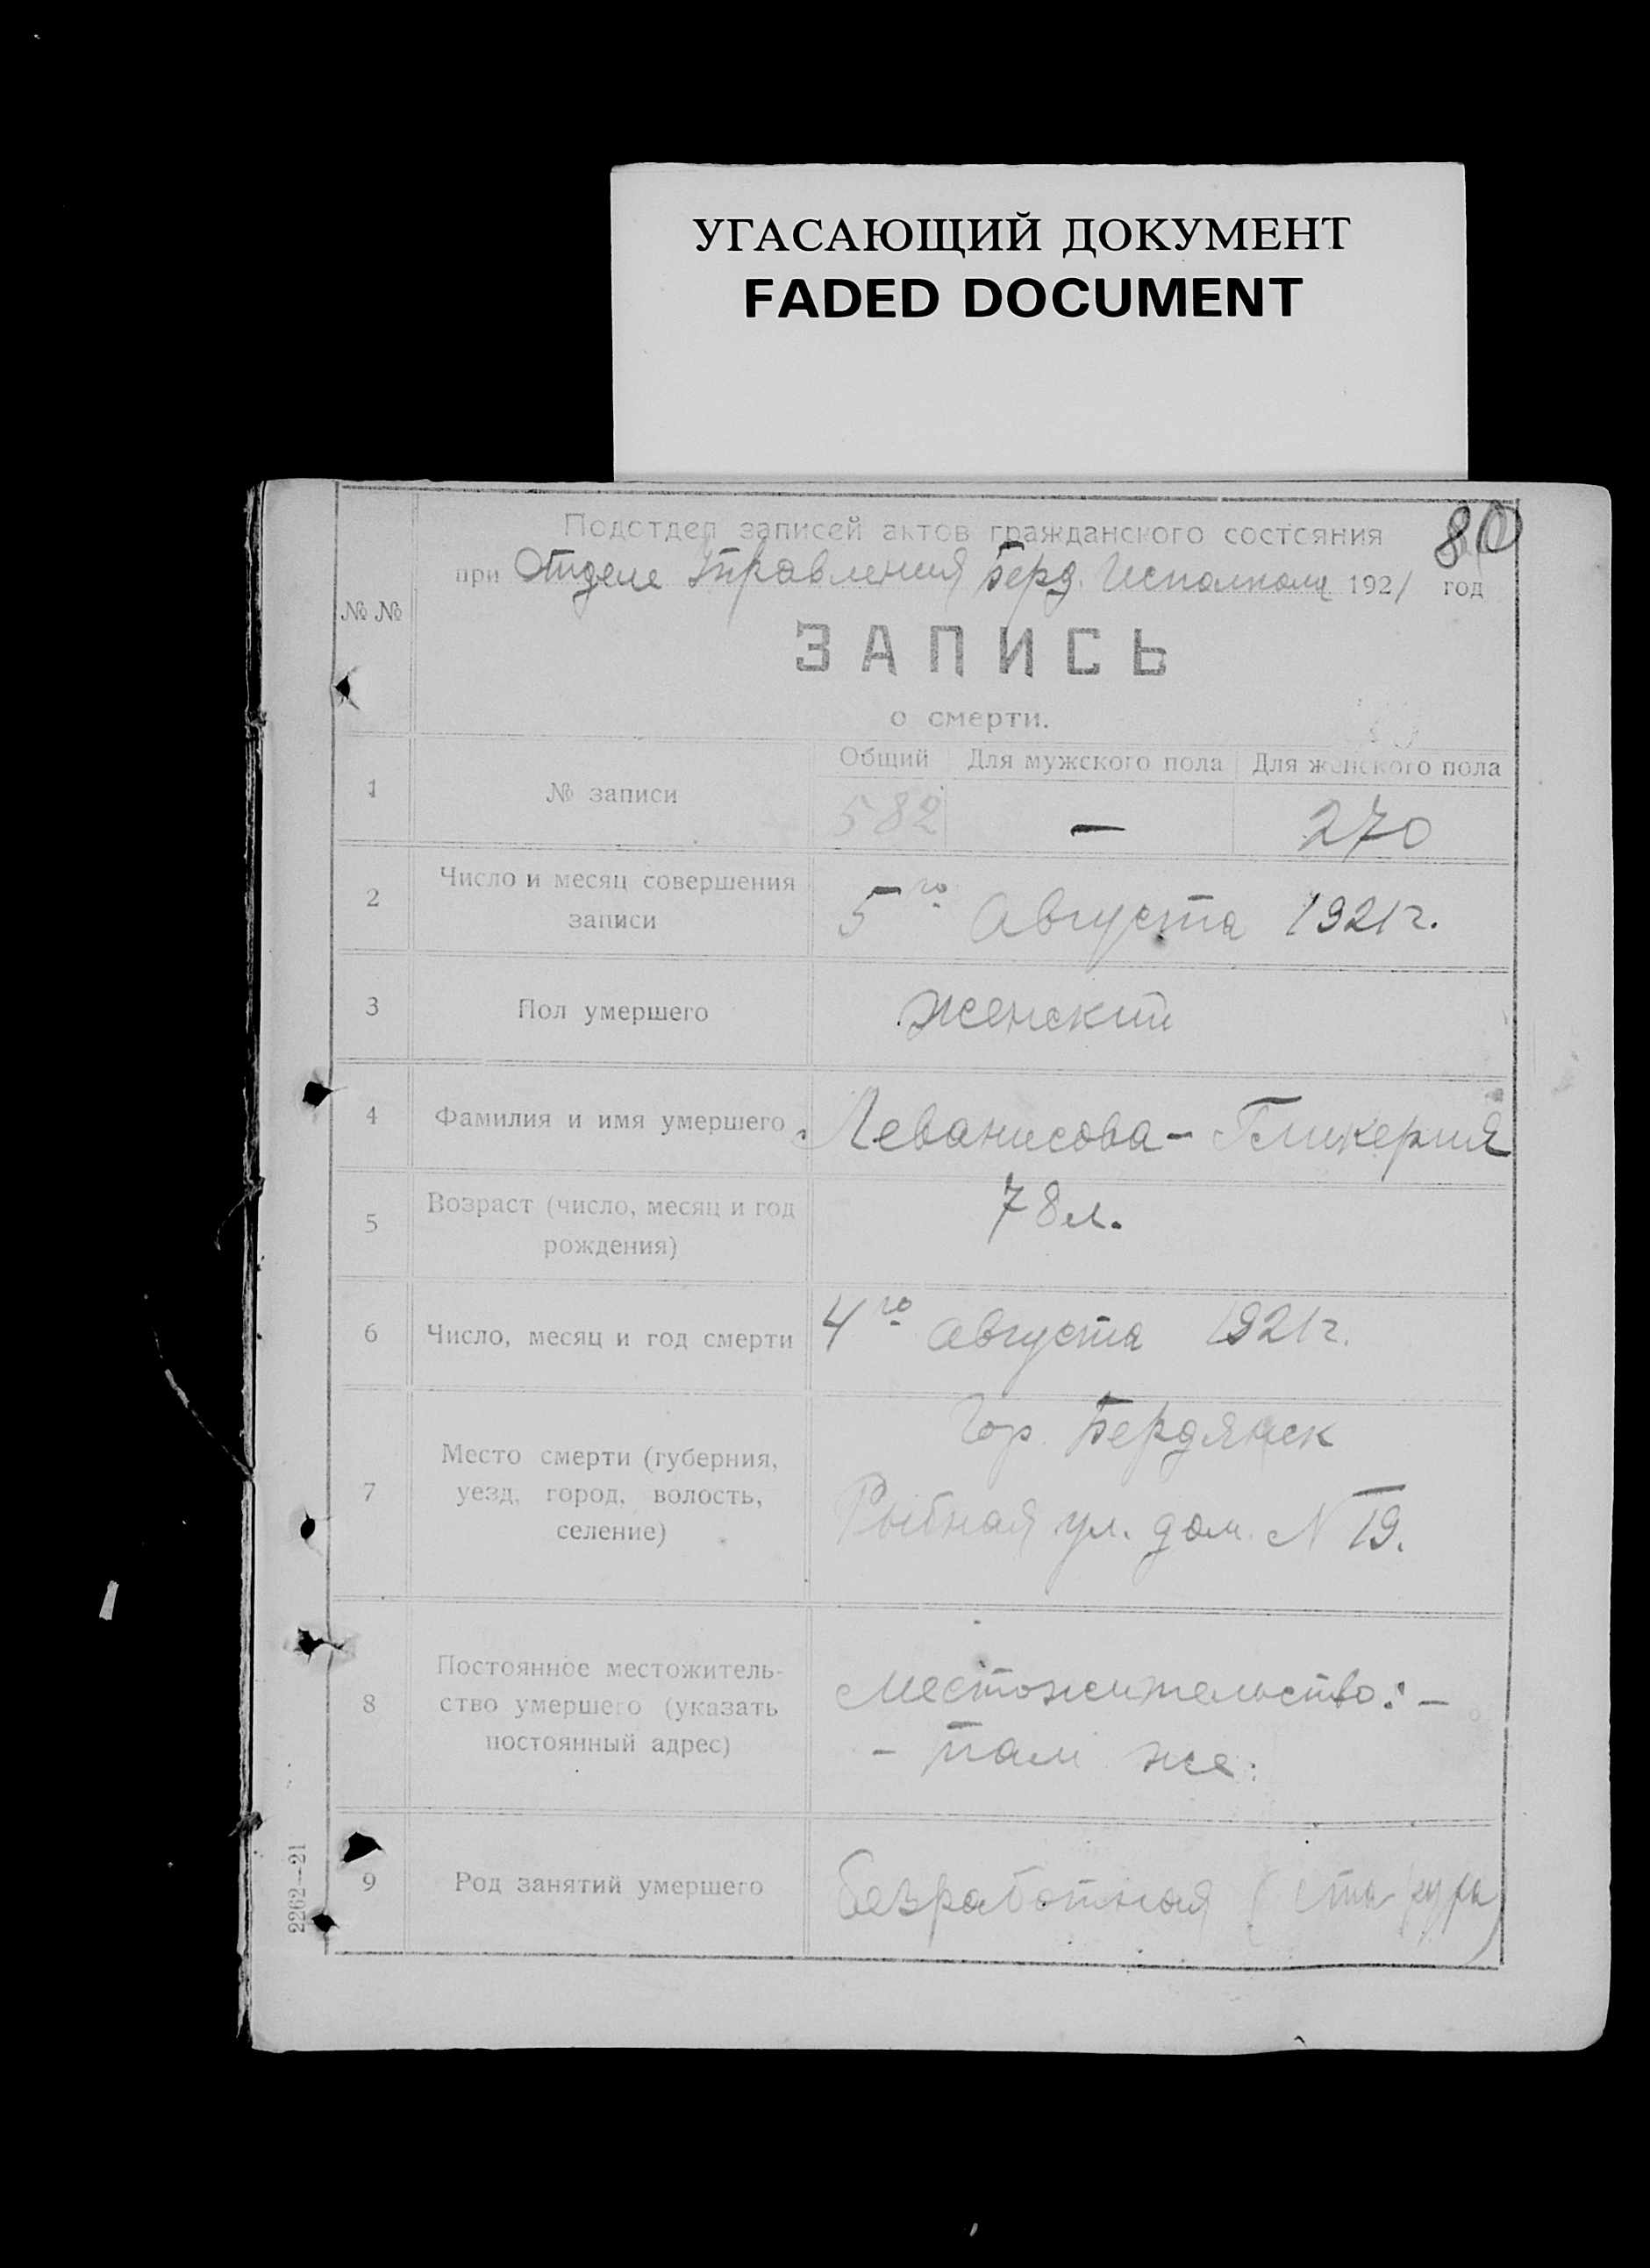 УГАСАЮЩИЙ ДОКУМЕНТ
FADED DOCUMENT
80
Подотдел записей актов гражданского состояния
при Отделе Управления Берд. Исполкома 1921 год
№ №
ЗАПИСЬ
о смерти.
Общий Для мужского пола Для женского пола
1 № записи 582 — 270
2 Число и месяц совершения
записи
5го Августа 1921 г.
3 Пол умершего Женский
4 Фамилия и имя умершего Леванисова - Гликерия
5 Возраст (число, месяц и год
рождения)
78 л.
6 Число, месяц и год смерти 4го августа 1921 г.
7 Место смерти (губерния,
уезд, город, волость,
селение)
Гор. Бердянск
Рыбная ул. дом. N 19.
8 Постоянное местожитель-
ство умершего (указать
постоянный адрес)
Местожительство: -
- там же:
9 Род занятий умершего безработная (старуха)
2262—21